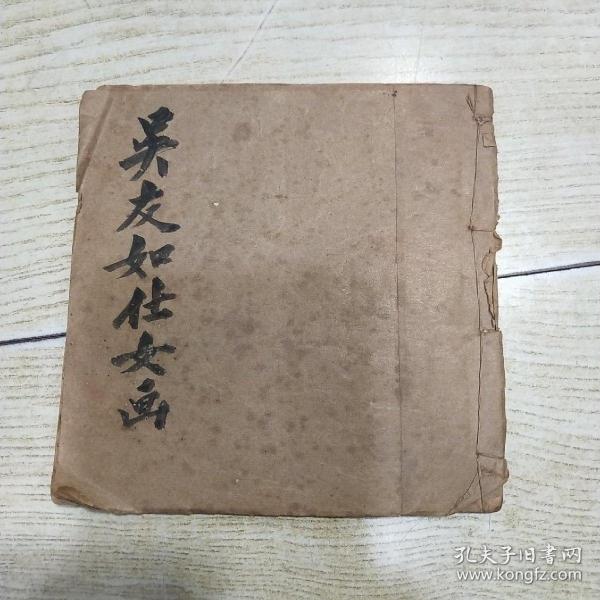 吴友如仕女画
孔夫子旧書网
www.kongfz.com